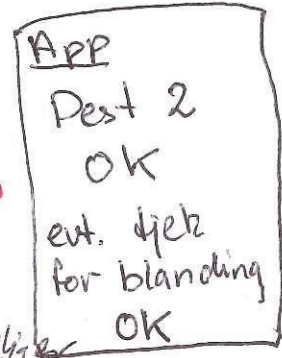 App
Dest 2
OK
evt. tjek
for blanding
OK